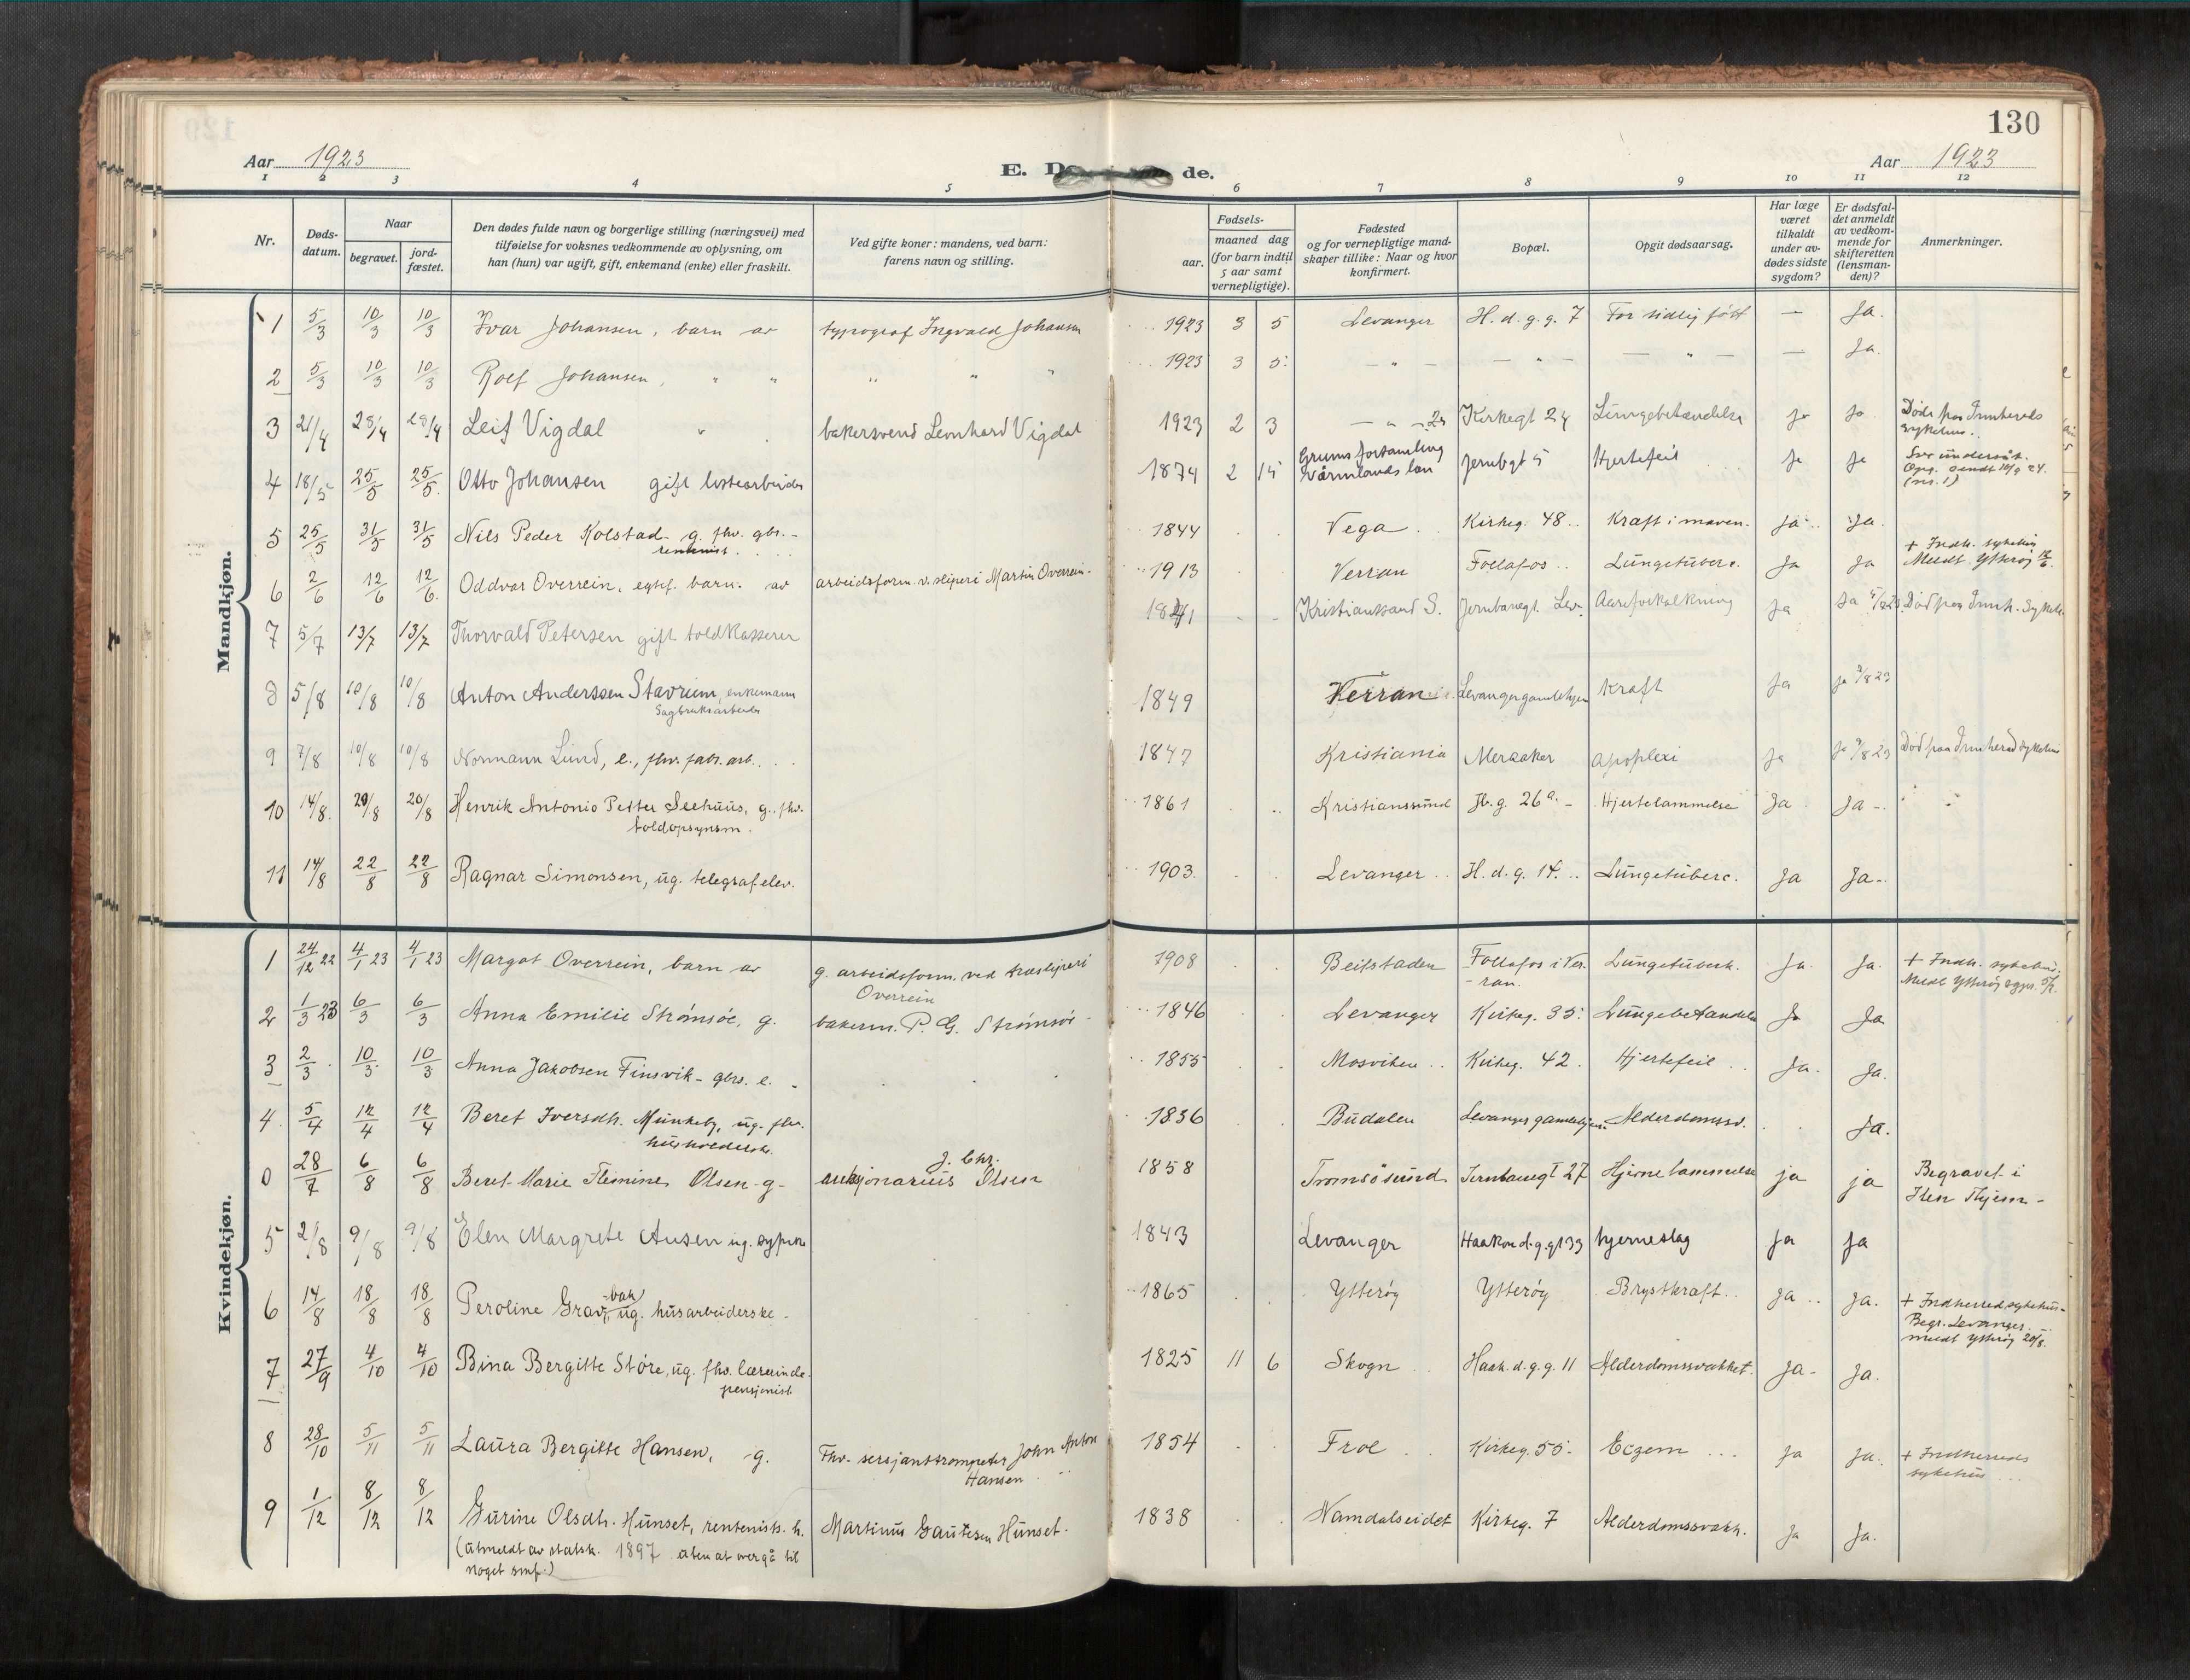 130
Aar 1923
E. Dø de.
Aar 1923
1 2 3 4 5 6 7 8 9 10 11 12
Nr.
Døds-datum.
Naar
begravet.
jord-fæstet.
Den dødes fulde navn og borgerlige stilling (næringsvei) med
tilføielse for voksnes vedkommende av oplysning, om
han (hun) var ugift, gift, enkemand (enke) eller fraskilt.
Ved gifte koner: mandens, ved barn:
farens navn og stilling.
Fødsels-
aar.
maaned dag
(for barn indtil
5 aar samt
vernepligtige).
Fødested
og for vernepligtige mand-
skaper tillike: Naar og hvor
konfirmert.
Bopæl.
Opgit dødsaarsag.
Har læge
været
tilkaldt
under av-
dødes sidste
sygdom?
Er dødsfal-
det anmeldt
av vedkom-
mende for
skifteretten
(lensman-
den)?
Anmerkninger.
Mandkjøn.
1 5/3 10/3 10/3 Ivar Johansen, barn av typograf Ingvald Johansen 1923 3 5 Levanger H. d. g. g. 7 For tidlig født — Ja.
2 5/3 10/3 10/3 Rolf Johansen, " " " " " 1923 3 5 — " — — " — — " — — Ja.
3 21/4 28/4 28/4 Leif Vigdal " bakersvend Leonhard Vigdal 1923 2 3 — " — Kirkegt 24 Lungebetændelse Ja Ja Døde paa Innherreds
sykehus.
4 18/5 25/5 25/5 Otto Johansen gift lostearbeider 1874 2 15 Grums forsamling
Värmlands län Jernbgt 5 Hjertefeil Ja Ja
(nr. 1)
5 25/5 31/5 31/5 Nils Peder Kolstad g. fhv. gbr.-
rentenist. 1844 Vega Kirkeg. 48 Kræft i maven. Ja Ja.
6 2/6 12/6 12/6 Oddvar Overrein, egtef. barn av arbeidsform. v. sliperi Martin Overrein. 1913 Verran Follafos Lungetuberc. Ja Ja + Indh. sykehus
Meldt Ytterøy
7 5/7 13/7 13/7 Thorvald Petersen gift toldkasserer 1841 Kristianssand S. Jernbanegt. Lev. Aareforkalkning Ja Ja Død paa Innh. Sykeh.
8 5/8 10/8 10/8 Anton Anderssen Stavrum, enkemann
Sagbruksarbeider 1849 Verran Levangergamlehjem Kræft Ja Ja 9/8 23
9 7/8 10/8 10/8 Normann Lund, e., fhv. fabr. arb. 1847 Kristiania Meraaker Apoplexi Ja Ja 9/8 23 Død paa Innherred sykehus
10 14/8 20/8 20/8 Henrik Antonio Petter Seehuus, g. fhv.
toldopsynsm. 1861 Kristianssund Jb. g. 26a. Hjertelammelse Ja Ja
11 14/8 22/8 22/8 Ragnar Simonsen, ug. telegrafelev. 1903 Levanger H. d. g. 14 Lungetuberc. Ja Ja
Kvindekjøn.
1 24/12 22 4/1 23 4/1 23 Margot Overrein, barn av g. arbeidsform. ved træsliperi
Overrein 1908 Beitstaden Follafos i Ver-
ran. Lungetuberk. Ja. Ja. + Indh. sykehus.
2 1/3 23 6/3 6/3 Anna Emilie Strømsøe, g. bakerm. P. G. Strømsøe 1846 Levanger Kirkeg. 35 Lungebetændelse Ja Ja
3 2/3 10/3 10/3 Anna Jakobsen Finsvik gbr. e. 1855 Mosviken Kirkeg. 42 Hjertefeil Ja. Ja.
4 5/4 12/4 12/4 Beret Iversdtr. Munkeby, ug. fhv.
husholderske. 1836 Budalen Levanger gamlehjem. Alderdomssv. Ja.
0 28/7 6/8 6/8 Beret Marie Flemine Olsen g. auksjonarius J. Chr. Olsen 1858 Tromsøsund Jernbanegt 27 Hjernelammelse ja ja Begravet i

5 2/8 9/8 9/8 Elen Margrete Ausen ug. sypike 1843 Levanger Haakon d. g. gt 33 hjerneslag Ja Ja
6 14/8 18/8 18/8 Peroline Gravbak, ug. husarbeiderske. 1865 Ytterøy Ytterøy Brystkræft Ja Ja. + Indherred sykehus.
Begr. Levanger.
meldt Ytterøy 20/8.
7 27/9 4/10 4/10 Bina Bergitte Støre, ug. fhv. lærerinde
pensjonist 1825 11 6 Skogn Haak. d. g. g. 11 Alderdomssvakhet. Ja. Ja.
8 28/10 5/11 5/11 Laura Bergitte Hansen, g. Fhv. sersjanttrompeter John Anton
Hansen 1854 Frol Kirkeg. 55 Eczem Ja Ja. + Indherreds
sykehus
9 1/12 8/12 8/12 Gurine Olsdtr. Hunset, rentenists h. Martinus Gautesen Hunset. 1838 Namdalseidet Kirkeg. 7 Alderdomssvakh. Ja Ja.
(Utmeldt av statsk. 1897 uten at overgå til
noget smf.)